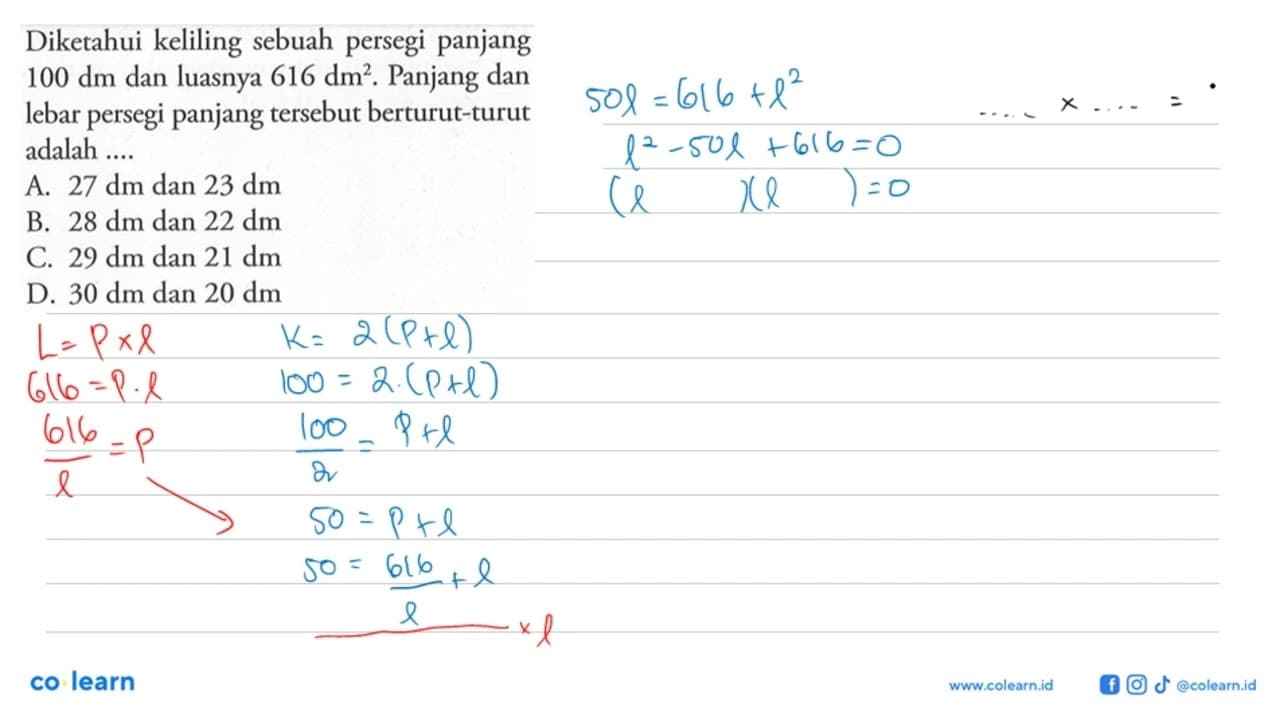 Diketahui keliling sebuah persegi panjang
100 dm dan luasnya 616 dm². Panjang dan
lebar persegi panjang tersebut berturut-turut
adalah ....
A. 27 dm dan 23 dm
B. 28 dm dan 22 dm
C. 29 dm dan 21 dm
D. 30 dm dan 20 dm
L = P × l
616 = P . l
616/l = P
K = 2(P+l)
100 = 2.(P+l)
100/2 = P+l
50 = P+l
50 = 616/l + l
× l
50l = 616 + l²
l² - 50l + 616 = 0
(l )(l ) = 0
..... × ..... =
co learn
www.colearn.id
@colearn.id